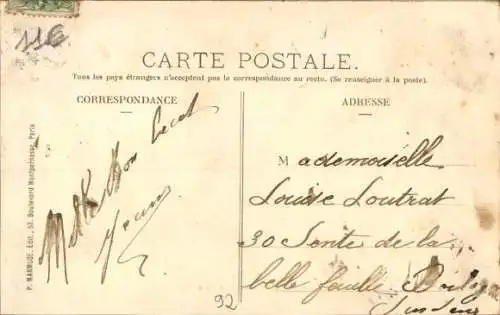 11€
CARTE POSTALE.
Tous les pays étrangers n'acceptent pas la correspondance au recto. (Se renseigner à la poste).
CORRESPONDANCE
Mille Bon
Jeanne
P. MARMUSE, Edit., 57, Boulevard Montparnasse, Paris
ADRESSE
Mademoiselle
Louise Loutrat
30 Sente de la
belle feuille
Sur Seine
92